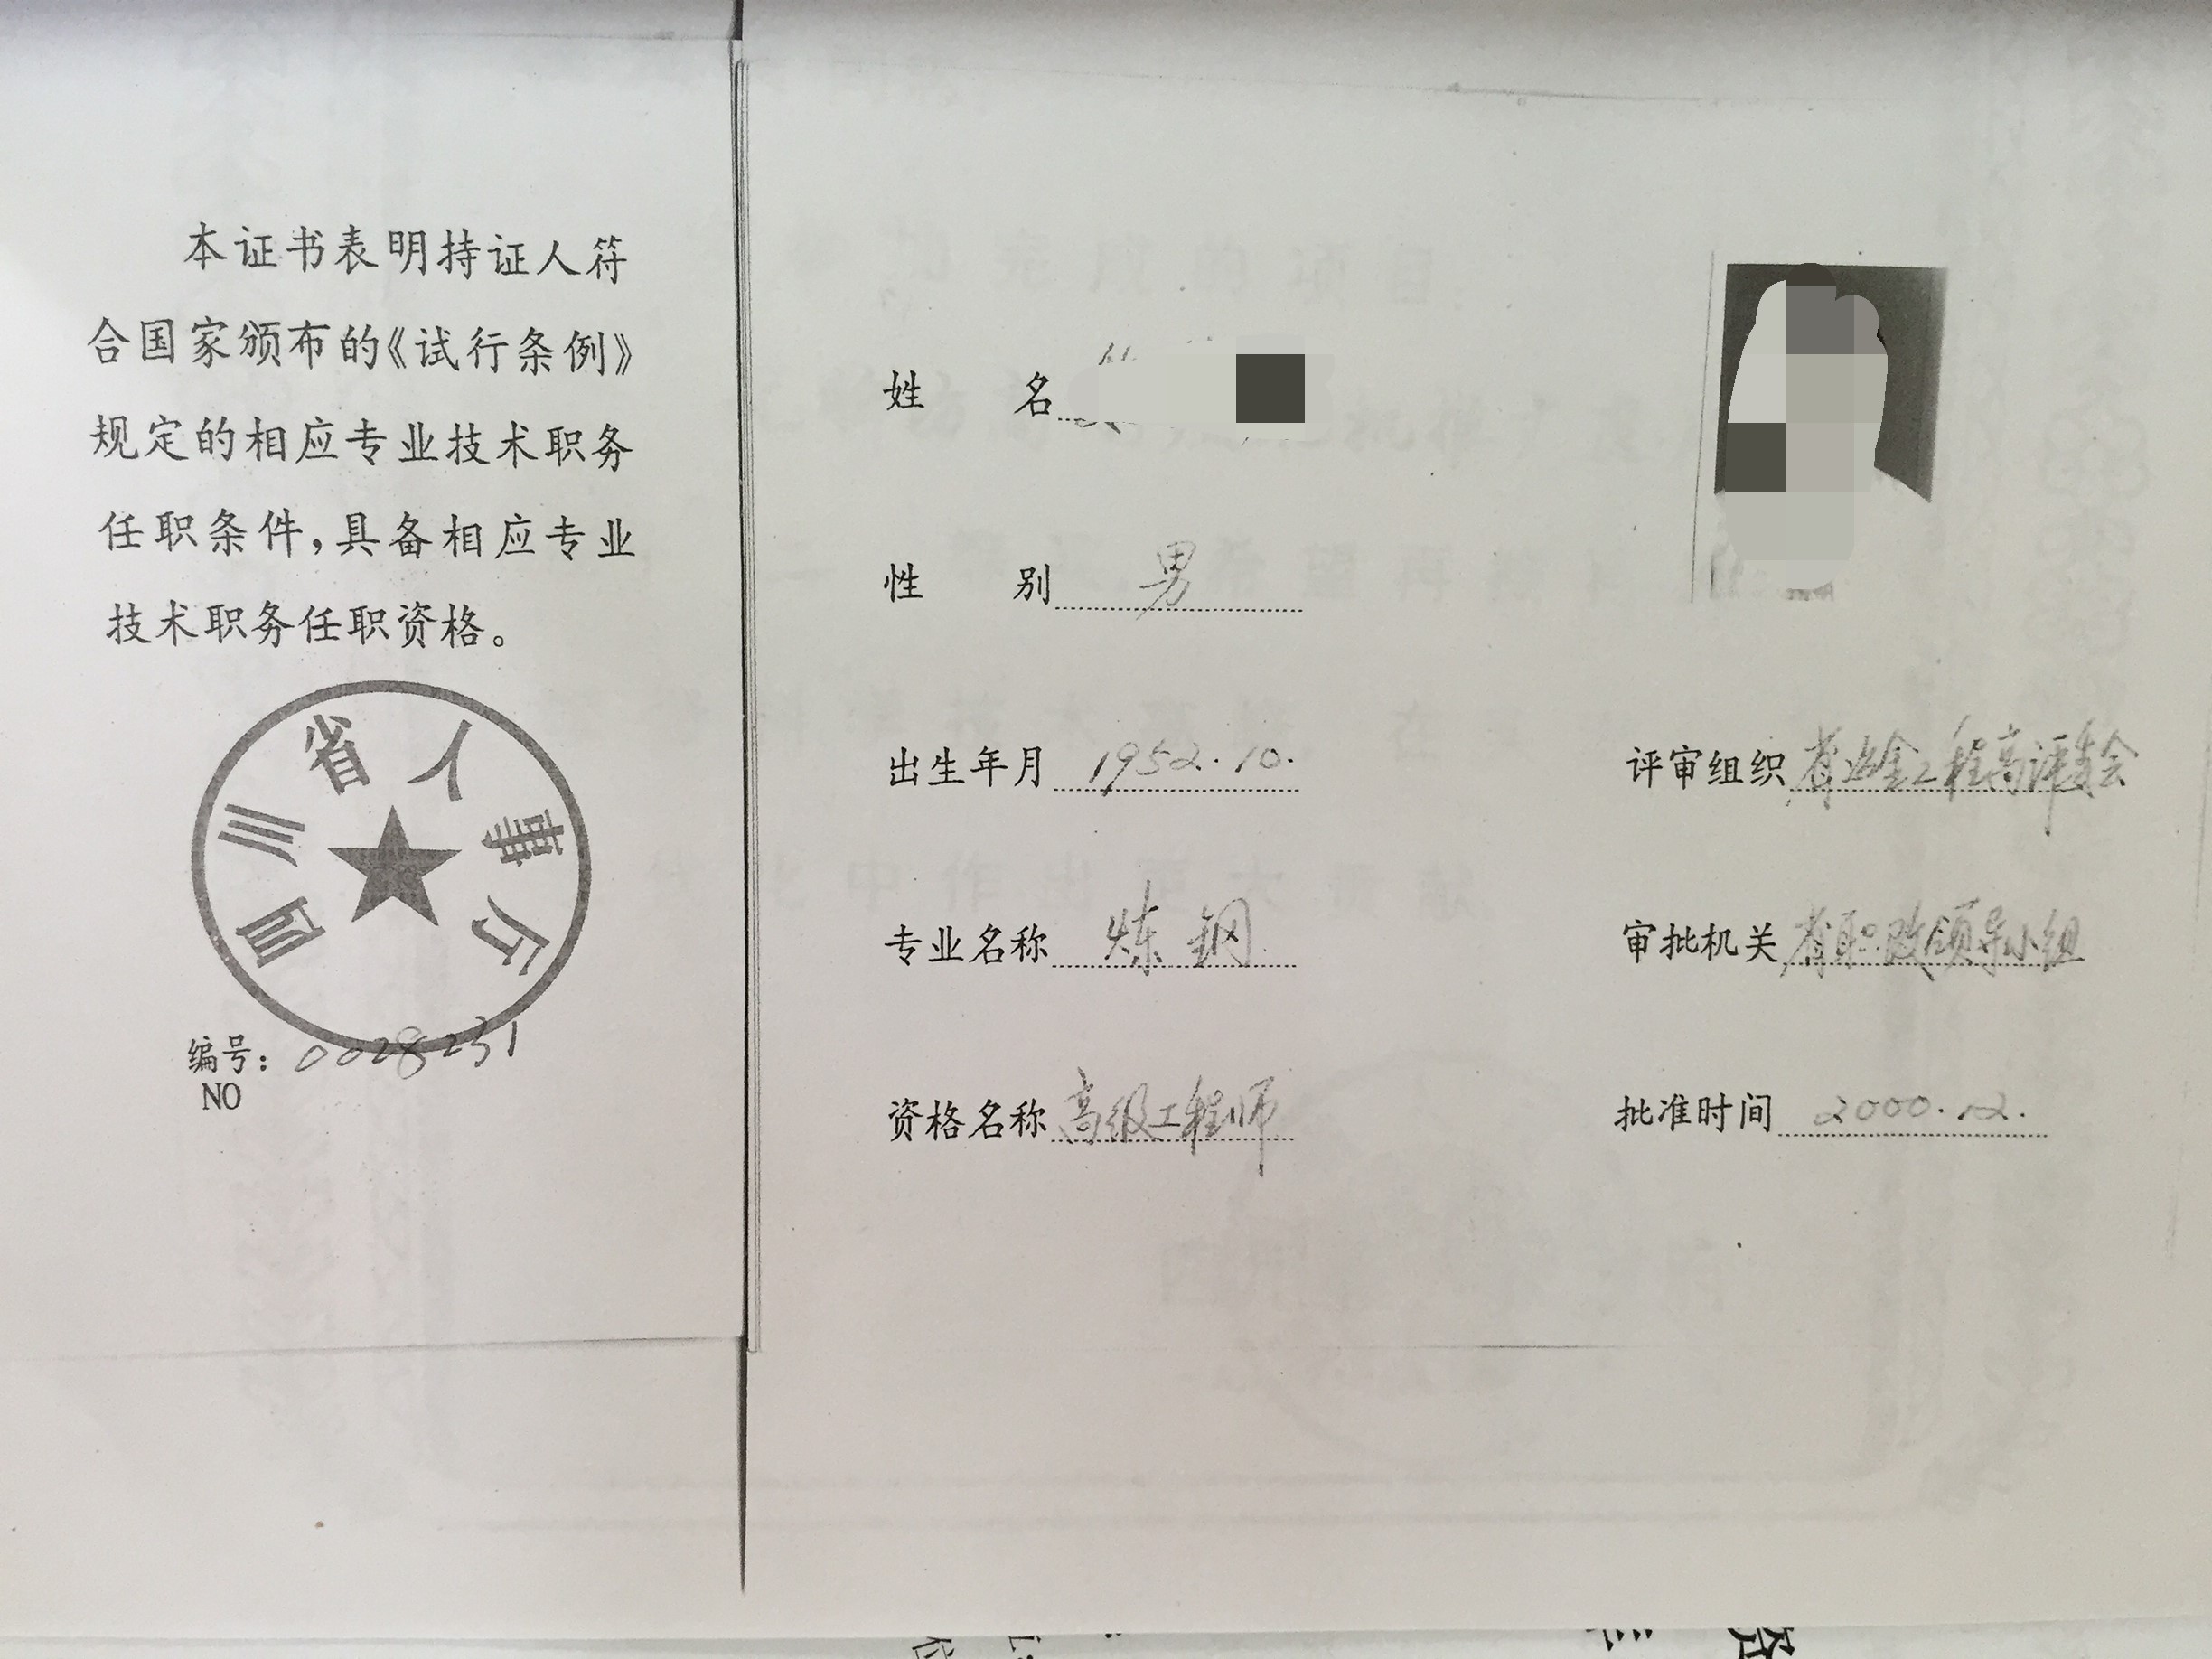 本证书表明持证人符
合国家颁布的《试行条例》
规定的相应专业技术职务
任职条件,具备相应专业
技术职务任职资格。
四川省人事厅
编号: 0028231
NO
姓 名
性 别 男
出生年月 1952.10.
专业名称 炼钢
资格名称 高级工程师
评审组织 省冶金工程高评委会
审批机关 省职改领导小组
批准时间 2000.12.